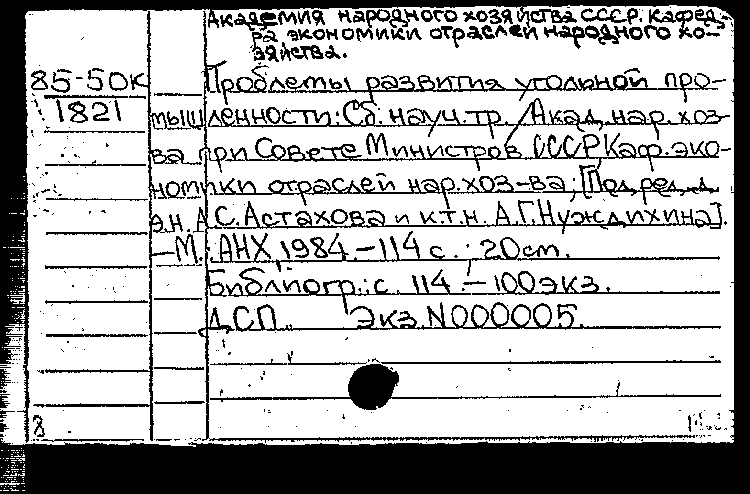 Академия народного хозяйства СССР. Кафед-
ра экономики отраслей народного хо-
зяйства.
85-50К
1821
Проблемы развития угольной про-
мышленности: Сб. науч. тр. / Акад. нар. хоз-
ва при Совете Министров СССР. Каф. эко-
номики отраслей нар. хоз-ва; [Под ред. д.
э.н. А.С. Астахова и к.т.н. А.Г. Нуждихина].
— М.: АНХ, 1984. — 114 с.; 20 см.
Библиогр.: с. 114 — 100 экз.
ДСП. Экз. N000005.
8